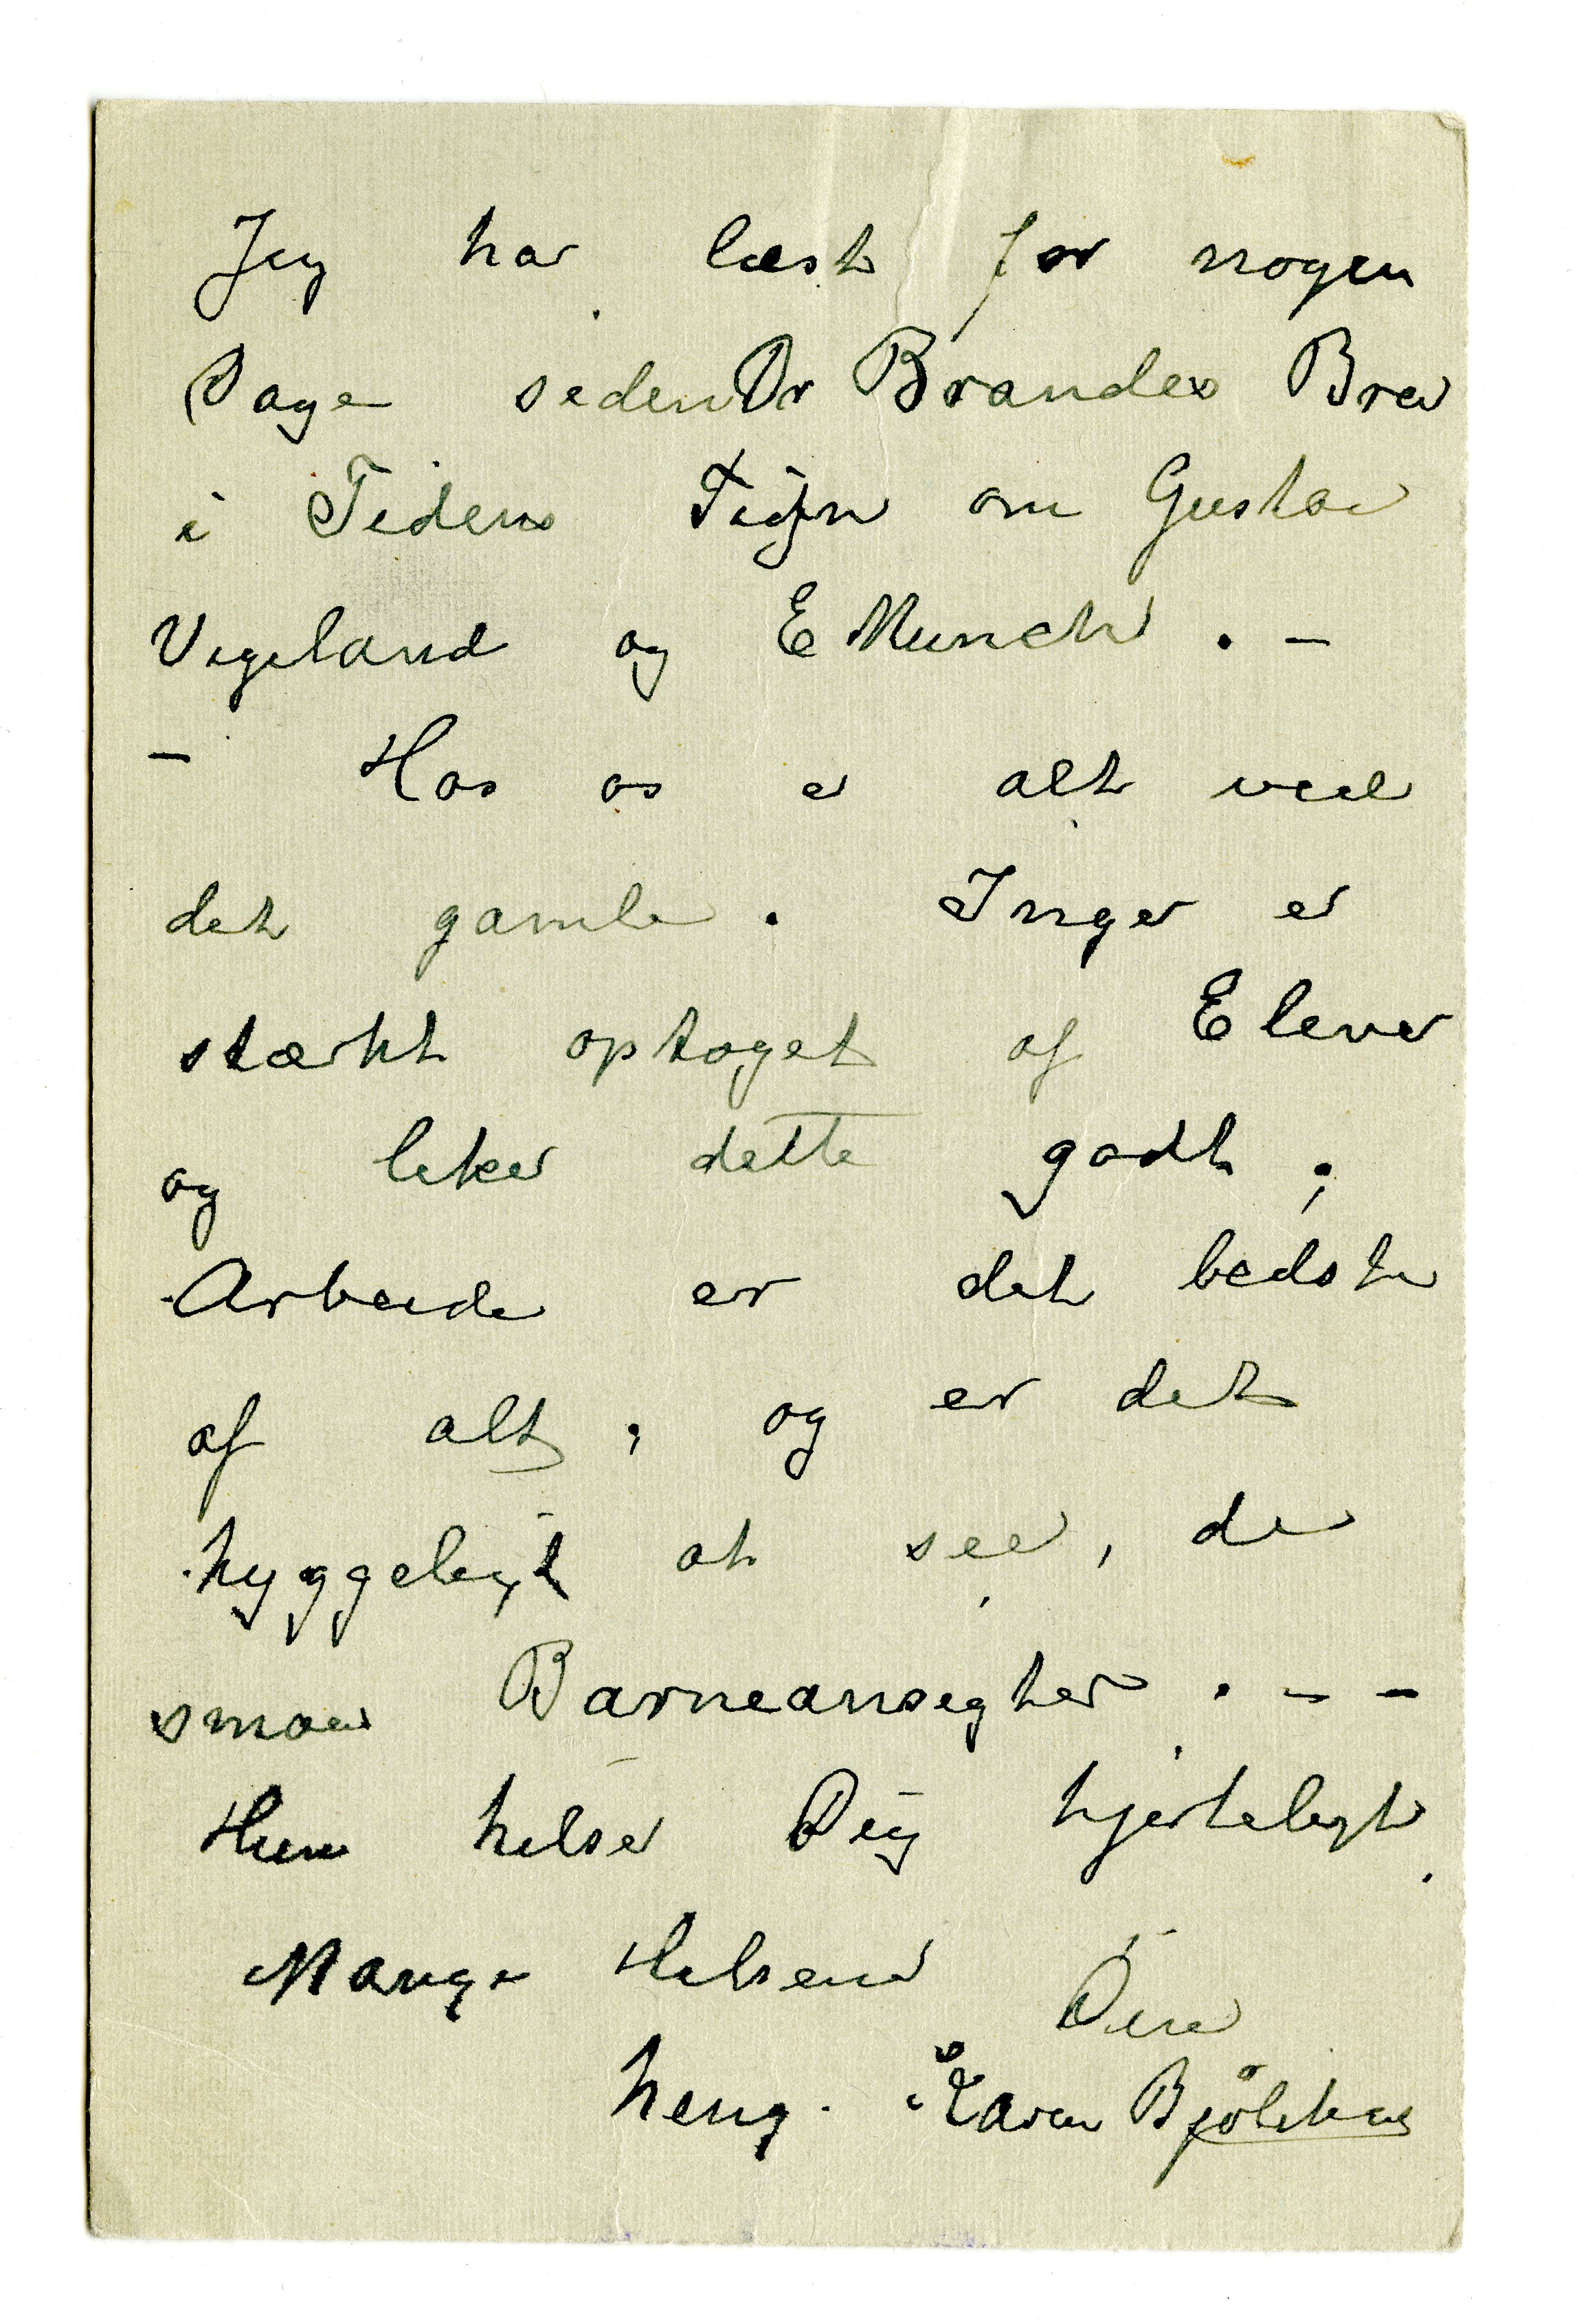 Jeg har læst for nogen
Dage siden Dr Brandes Brev
i Tidens Tegn om Gustav
Vigeland og E Munch . –
– Hos os er alt ved
det gamle . Inger er
stærkt optaget af Elever
og liker dette godt ;
Arbeide er det bedste
af alt , og er det
hyggeligt at see , de
smaae Barneansigter . – –
Hun hilser Dig hjerteligt .
Mange Hilsener
Din
heng. Karen Bjölstad